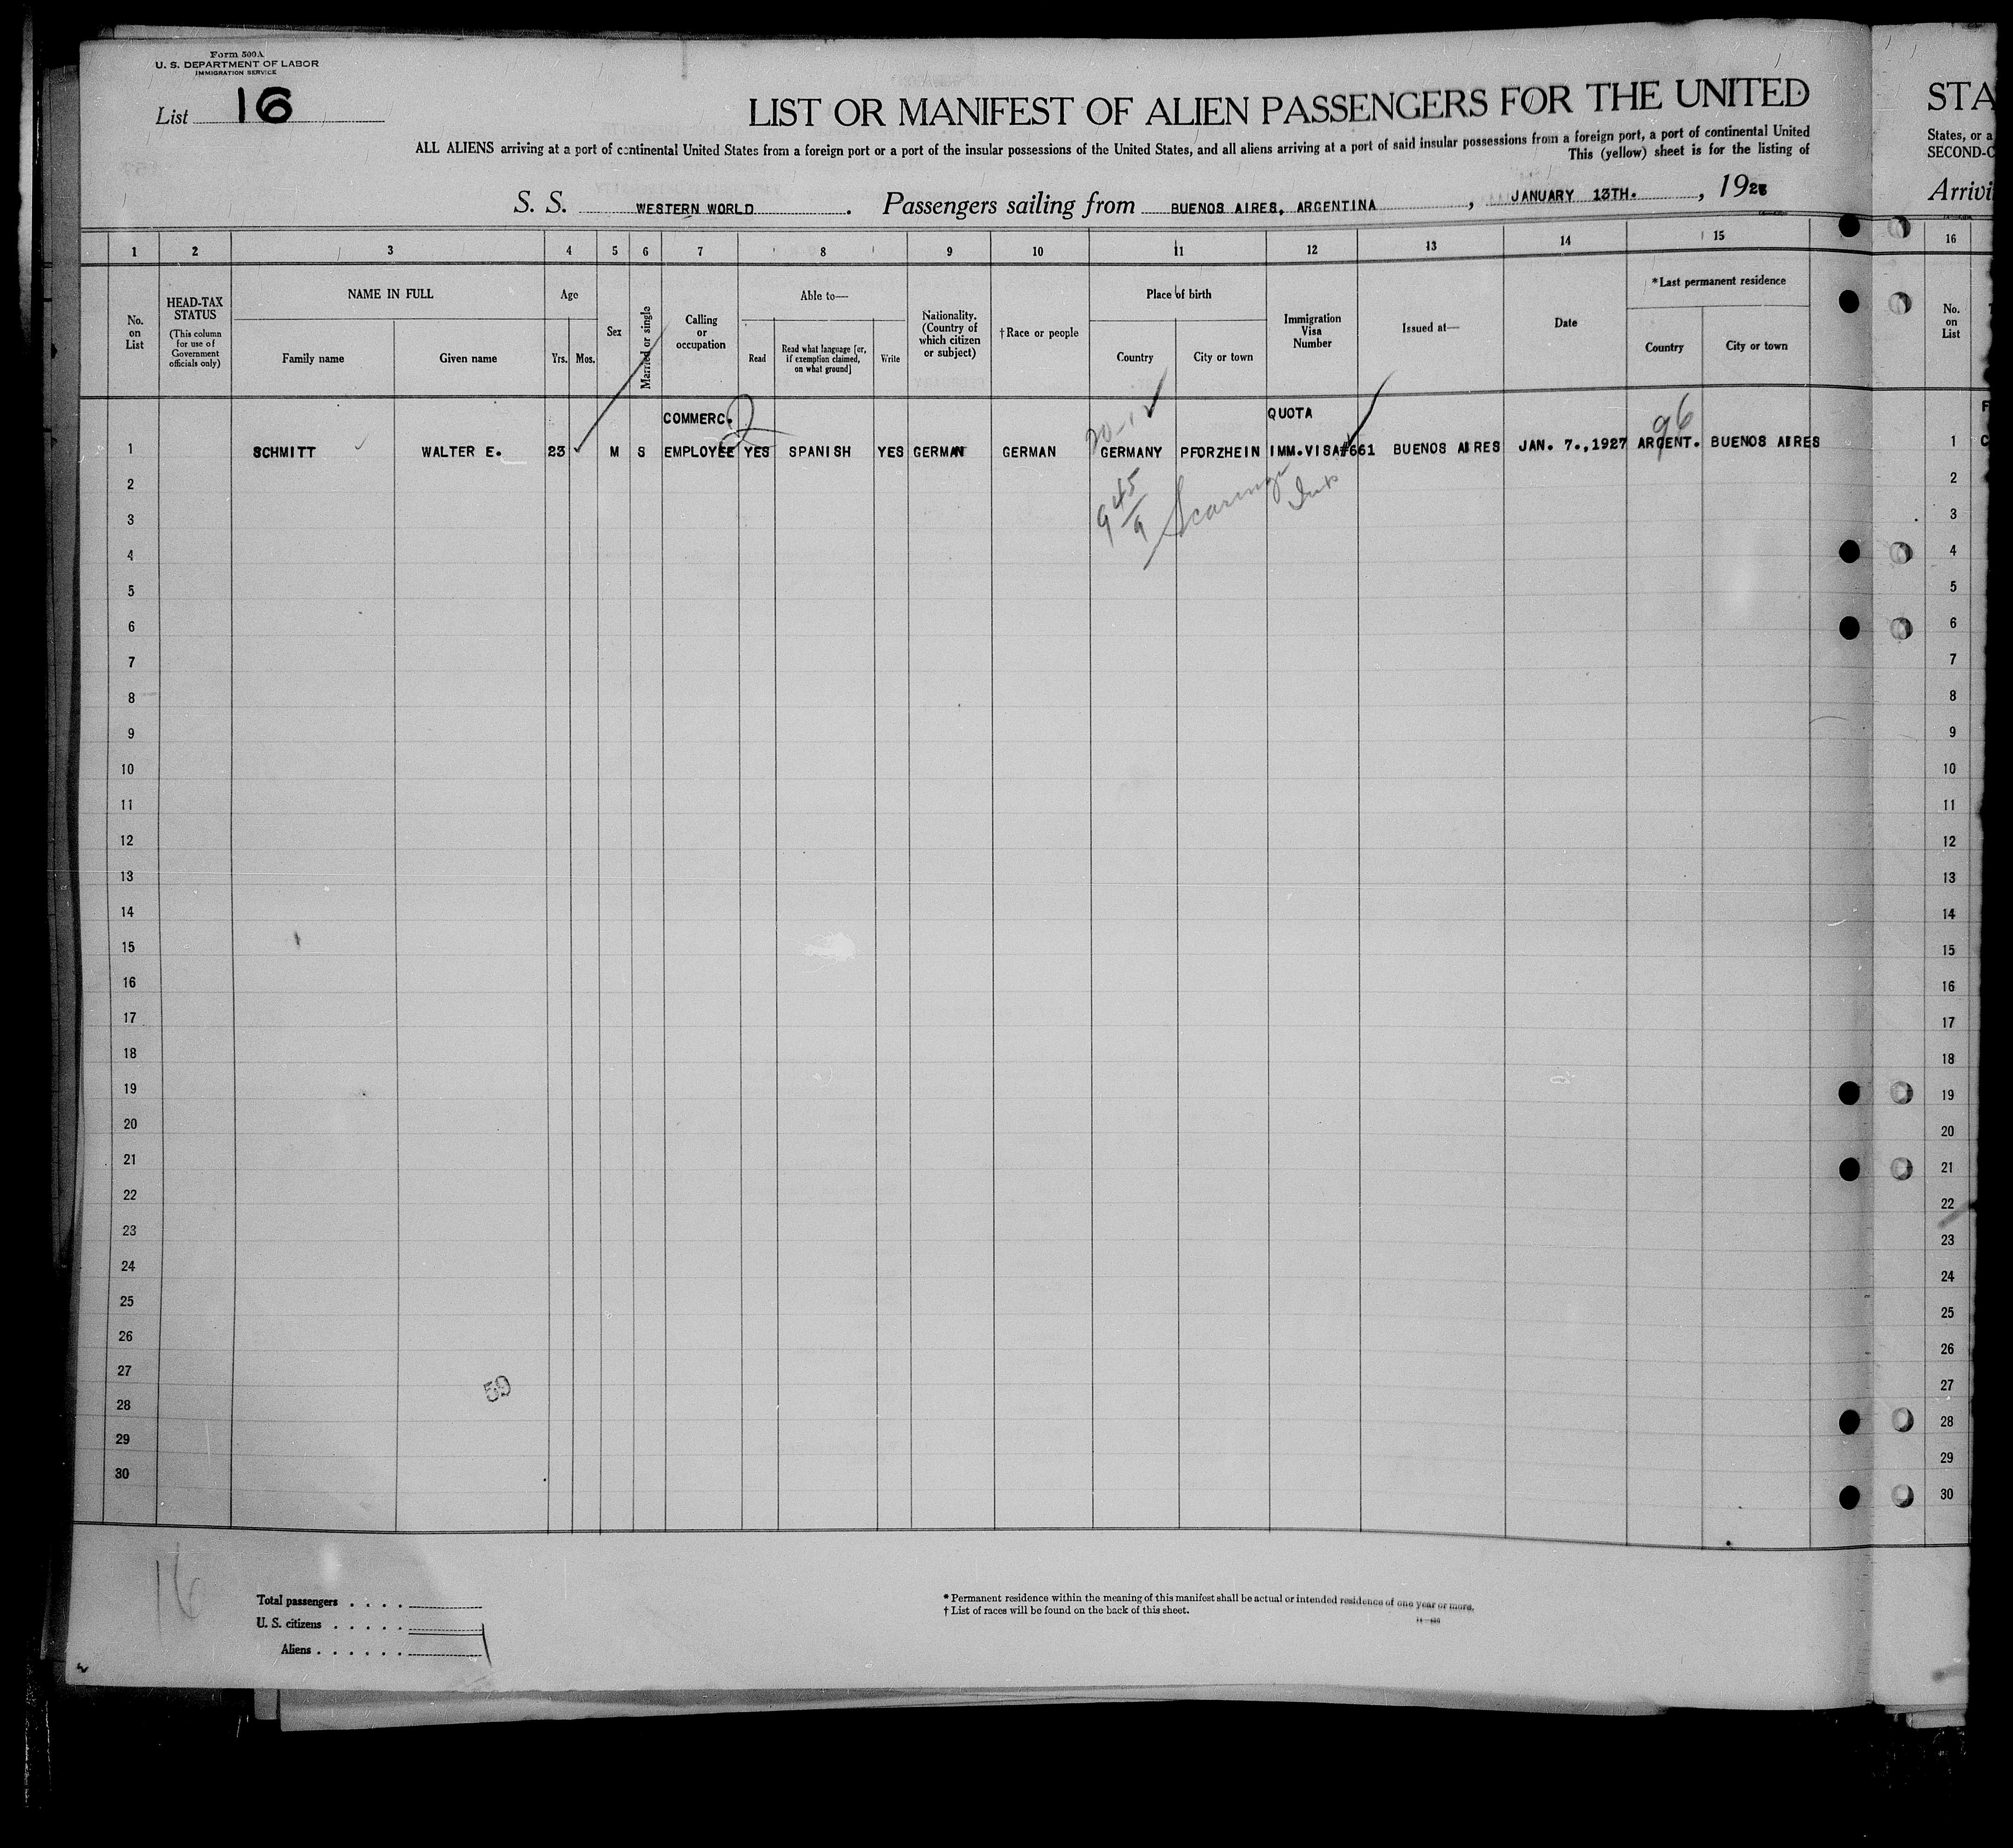 Form 500A
U. S. DEPARTMENT OF LABOR
IMMIGRATION SERVICE
List 16
LIST OR MANIFEST OF ALIEN PASSENGERS FOR THE UNITED
ALL ALIENS arriving at a port of continental United States from a foreign port or a port of the insular possessions of the United States, and all aliens arriving at a port of said insular possessions from a foreign port, a port of continental United
This (yellow) sheet is for the listing of
S. S. WESTERN WORLD. Passengers sailing from BUENOS AIRES, ARGENTINA, JANUARY 13TH., 19
STA
States, or a
SECOND-C
Arrivi
1 2 3 4 5 6 7 8 9 10 11 12 13 14 15 16
No. on List
HEAD-TAX STATUS
(This column for use of Government officials only)
NAME IN FULL
Family name
Given name
Age
Yrs.
Mos.
Sex
Married or single
Calling or occupation
Able to—
Read
Read what language [or, if exemption claimed, on what ground]
Write
Nationality. (Country of which citizen or subject)
†Race or people
Place of birth
Country
City or town
Immigration Visa Number
Issued at—
Date
*Last permanent residence
Country
City or town
No. on List
COMMERC. QUOTA 96
1 SCHMITT WALTER E. 23 M S EMPLOYEE YES SPANISH YES GERMAN GERMAN GERMANY PFORZHEIN IMM.VISA#661 BUENOS AIRES JAN. 7.,1927 ARGENT. BUENOS AIRES 1
2 2
3 3
4 4
5 5
6 6
7 7
8 8
9 9
10 10
11 11
12 12
13 13
14 14
15 15
16 16
17 17
18 18
19 19
20 20
21 21
22 22
23 23
24 24
25 25
26 26
27 27
59
28 28
29 29
30 30
16
Total passengers . . . .
U. S. citizens . . . . .
Aliens . . . . . .
* Permanent residence within the meaning of this manifest shall be actual or intended residence of one year or more.
† List of races will be found on the back of this sheet.